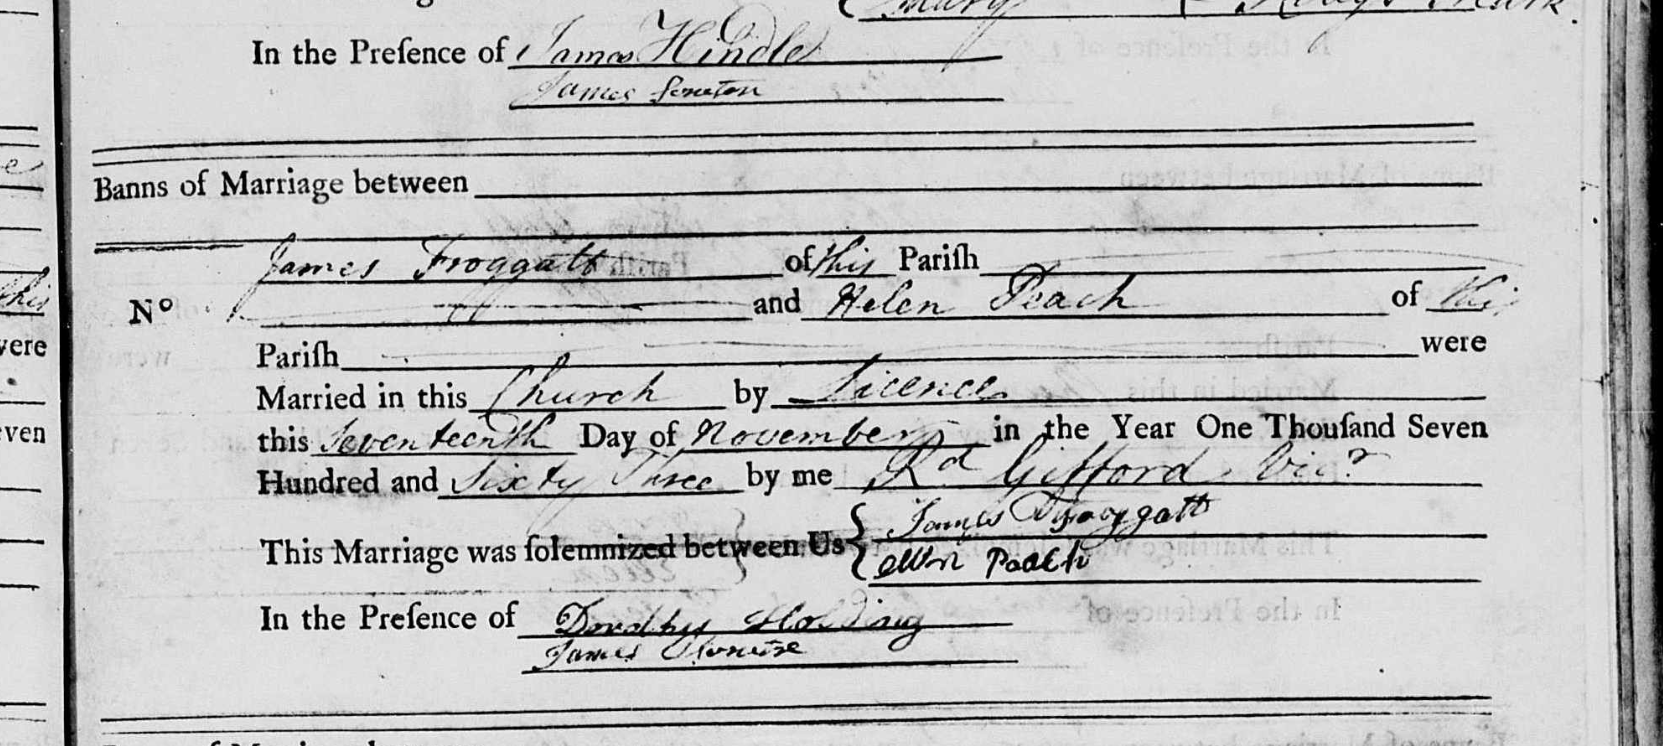 In the Preſence of James Hindle
James
Banns of Marriage between
James Froggatt of this Pariſh
No and Helen Peach of this
Pariſh were
Married in this Church by Licence
this Seventeenth Day of November in the Year One Thouſand Seven
Hundred and Sixty Three by me Rd Gifford Vicr
This Marriage was ſolemnized between Us { James Froggatt
Peach
In the Preſence of Dorothy Holding
James